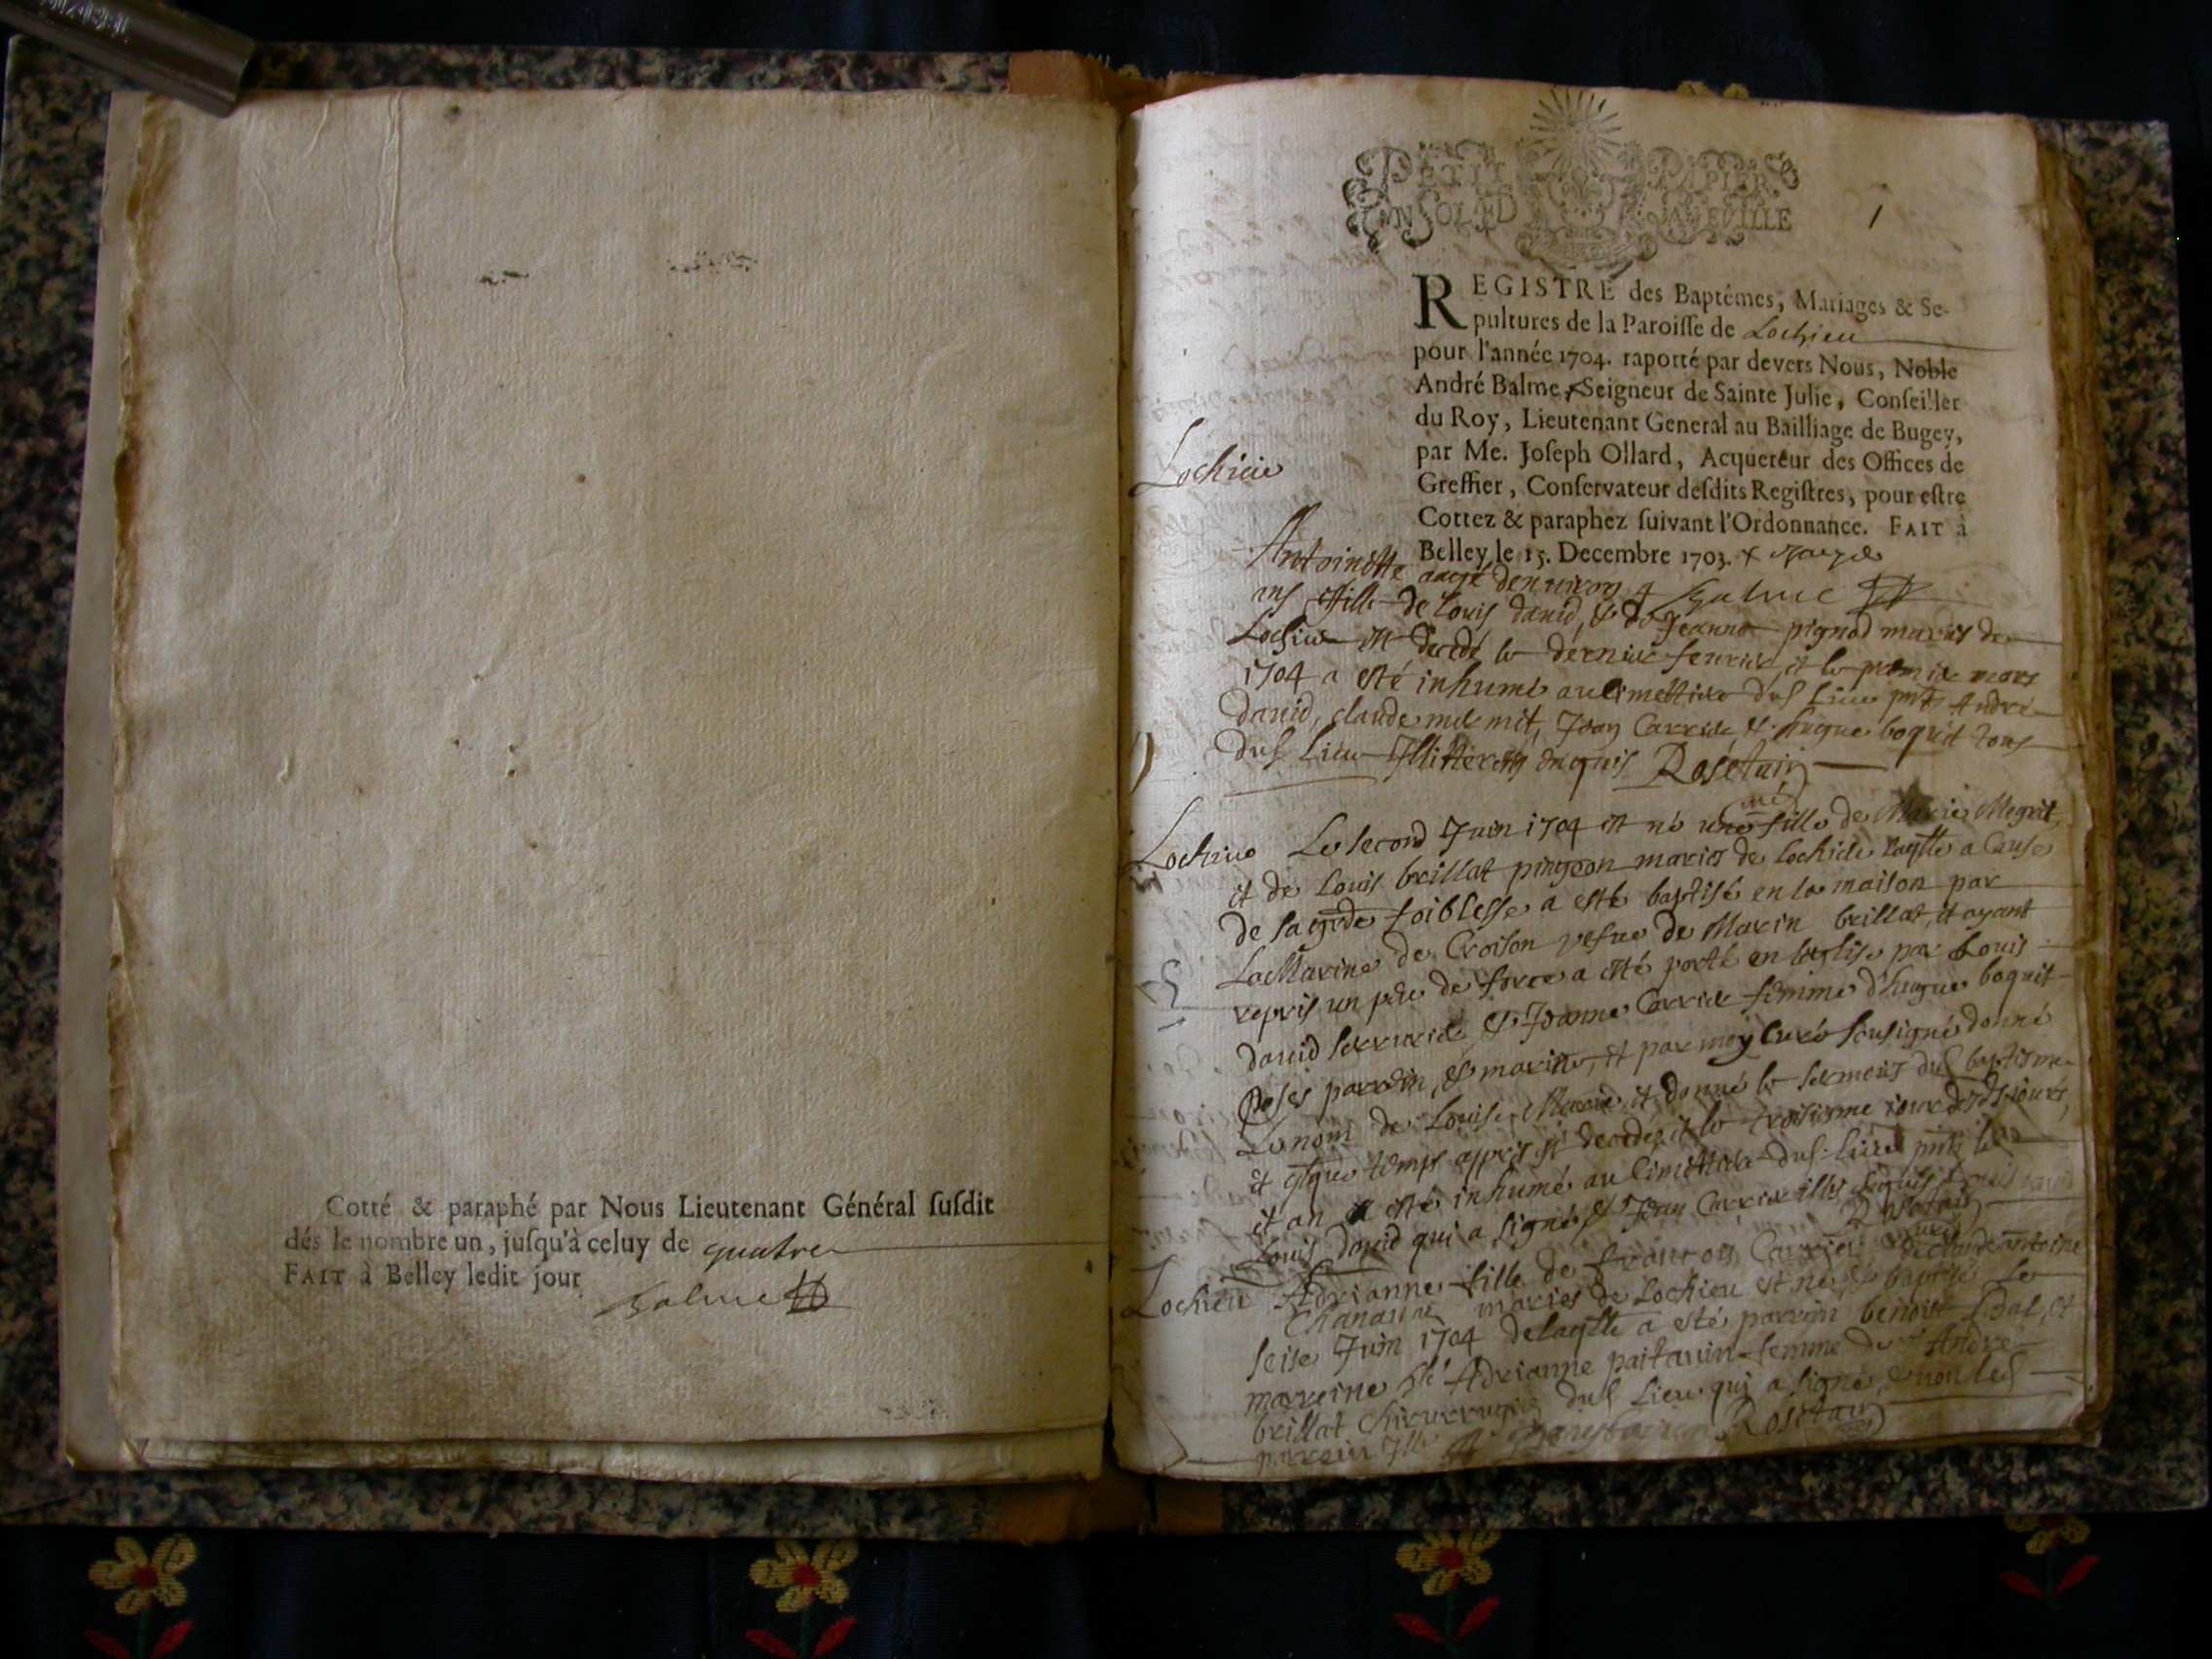 Cotté & paraphé par Nous Lieutenant Général susdit
dés le nombre un, jusqu'à celuy de quatre
FAIT à Belley ledit jour
Balme
PETIT PAPIER
UN SOL LED LA FEUILLE
1
REGISTRE des Baptêmes, Mariages & Se-
pultures de la Paroisse de Lochieu
pour l'année 1704. raporté par devers Nous, Noble
André Balme, Seigneur de Sainte Julie, Conseiller
du Roy, Lieutenant General au Bailliage de Bugey,
par Me. Joseph Ollard, Acquereur des Offices de
Greffier, Conservateur desdits Registres, pour estre
Cottez & paraphez suivant l'Ordonnance. FAIT à
Belley le 15. Decembre 1703.
Balme
Lochieu
Antoinette aagé denuiron 4
ans fille de Louis dauid, & de Jeanne pignod mariés de
Lochieu est decedé le dernier feurier et le premier mars
1704 a esté inhumé au Cimettiere dud Lieu pnts André
dauid, claude mermit, Jean Carrier & hugue boquit tous
dud Lieu Illitterés enquis Rosetain
Lochieu Le second Juin 1704 est né une fille de Marie Megrit,
et de Louis brillat pingeon mariés de Lochieu laqlle a Cause
de sa grde foiblesse a esté baptisé en la maison par
La Marine de Croison vefue de Marin brillat, et ayant
repris un peu de force a esté porté en leglise par Louis
dauid serrurier & Jeanne Carrier femme d'hugue boquit
ses parrin, & marine, et par moy Curé sousigné donné
Le nom de Louise et donné le dud baptesme
et qlque temps appres est decedé, et le troisieme jour
et an a esté inhumé au Cimettiere dud Lieu pnts
Louis dauid qui a signé & Jean Carrier
Rosetain
Lochieu Adrianne fille de françois Carrier de Claude Antoine
Chanallat mariés de Lochieu est né & baptisé Le
seise Juin 1704 de laqlle a esté parrin benoist et
marreine Adrianne paitauin femme de André
brillat chirurrugin dud Lieu qui a signé, & non led
parrein Rosetain